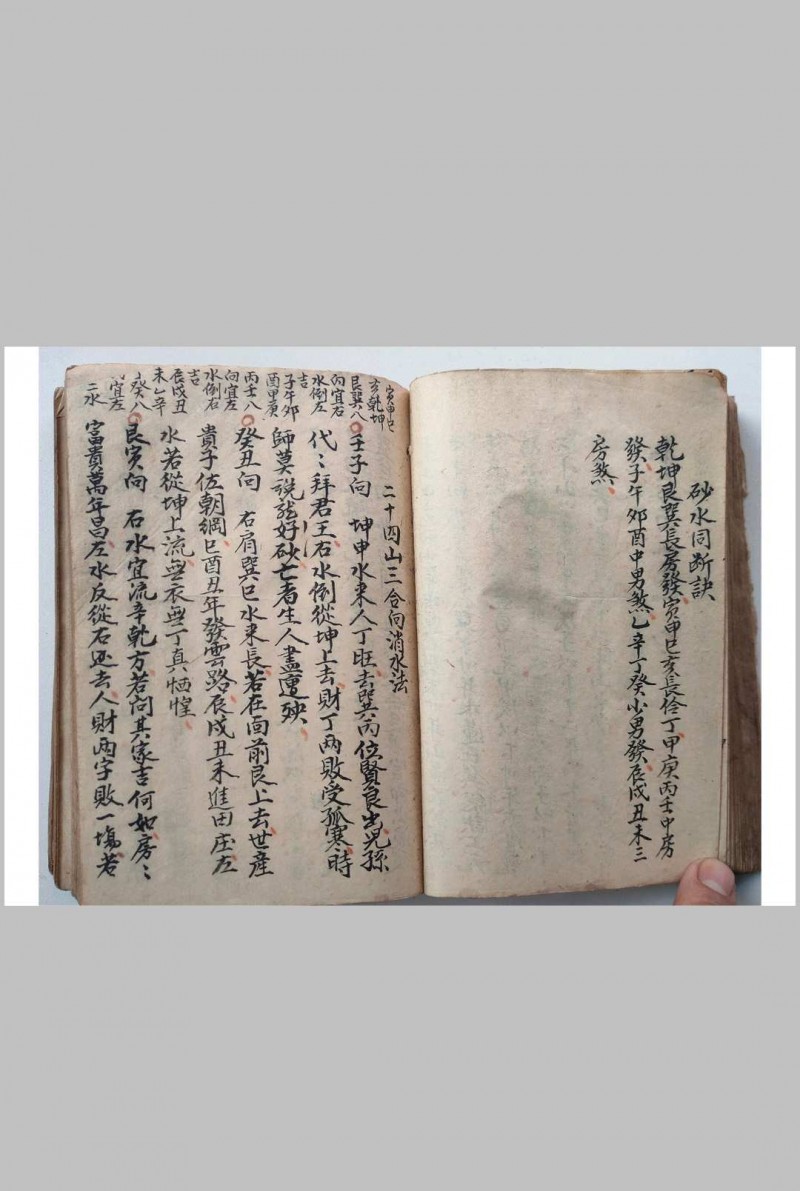 砂水同断訣
乾坤艮巽長房發寅申巳亥長伶丁甲庚丙壬中房
發子午卯酉中男煞乙辛丁癸小男發辰戌丑未三
房煞
寅申巳
亥乾坤
艮巽八
向宜右
水倒左
吉
子午卯
酉甲庚
丙壬八
向宜左
水倒右
吉
辰戌丑
未乙辛
癸八
宜左
二水
二十四山三合向消水法
壬子向 坤申水来人丁旺去巽丙位賢良出児孫
代〻拜君王右水倒從坤上去財丁兩敗受孤寒時
師莫說龍好砂亡者生人盡遭殃
癸丑向 右肩巽巳水来長若在面前艮上去世産
貴子佐朝綱巳酉丑年發雲路辰戌丑未進田庄左
水若從坤上流無衣無丁真恓惶
艮寅向 右水宜流辛乾方若问其家吉何如房〻
富貴萬年昌左水反從右还去人財兩字敗一塲若